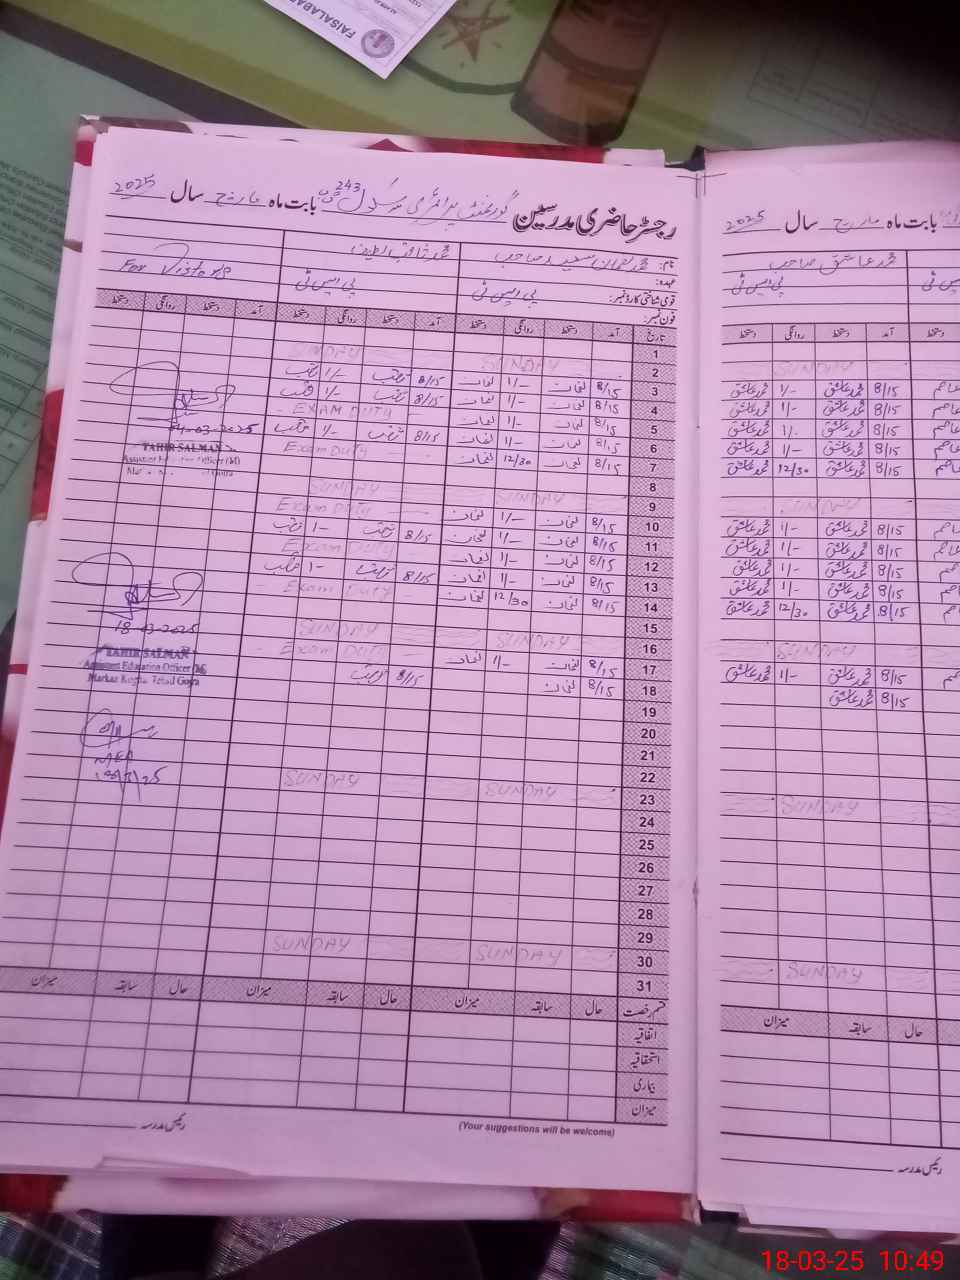 FAISALABAD
رجسٹر حاضری مدرسین گورنمنٹ پرائمری سکول 243 بابت ماہ مارچ سال 2025
نام: محمد نعمان سعید صاحب محمد ثاقب لطیف
For Visitors
عہدہ: پی ایس ٹی پی ایس ٹی
قومی شناختی کارڈ نمبر:
فون نمبر:
تاریخ آمد دستخط روانگی دستخط آمد دستخط روانگی دستخط آمد دستخط روانگی دستخط
1
2 SUNDAY SUNDAY
3 8/15 لنعمان 1/- لنعمان 8/15 ثاقب 1/- ثاقب
4 8/15 لنعمان 1/- لنعمان 8/15 ثاقب 1/- ثاقب
5 8/15 لنعمان 1/- لنعمان - EXAM DUTY -
6 8/15 لنعمان 1/- لنعمان 8/15 ثاقب 1/- ثاقب
7 8/15 لنعمان 12/30 لنعمان - Exam Duty -
8
9 SUNDAY SUNDAY
10 8/15 لنعمان 1/- لنعمان - Exam Duty -
11 8/15 لنعمان 1/- لنعمان 8/15 ثاقب 1- ثاقب
12 8/15 لنعمان 1/- لنعمان - Exam Duty -
13 8/15 لنعمان 1/- لنعمان 8/15 ثاقب 1- ثاقب
14 8/15 لنعمان 12/30 لنعمان - Exam Duty -
15
16 SUNDAY SUNDAY
17 8/15 لنعمان 1/- لنعمان - Exam Duty -
18 8/15 لنعمان 8/15 ثاقب
19
20
21
22
23 SUNDAY SUNDAY
24
25
26
27
28
29
30 SUNDAY SUNDAY
31
قسم رخصت حال سابقہ میزان حال سابقہ میزان حال سابقہ میزان
اتفاقیہ
استحقاقیہ
بیماری
میزان
(Your suggestions will be welcome)
رئیس مدرسہ
14-03-2025
TAHIR SALMAN
Assistant Education Officer (M)
18-03-2025
TAHIR SALMAN
Assistant Education Officer (M)
Markaz Kogha Tehsil Gojra
MEA
بابت ماہ مارچ سال 2025
محمد عاشق صاحب
پی ایس ٹی
آمد دستخط روانگی دستخط
SUNDAY
8/15 محمد عاشق 1/- محمد عاشق
8/15 محمد عاشق 1/- محمد عاشق
8/15 محمد عاشق 1/- محمد عاشق
8/15 محمد عاشق 1/- محمد عاشق
8/15 محمد عاشق 12/30 محمد عاشق
SUNDAY
8/15 محمد عاشق 1/- محمد عاشق
8/15 محمد عاشق 1/- محمد عاشق
8/15 محمد عاشق 1/- محمد عاشق
8/15 محمد عاشق 1/- محمد عاشق
8/15 محمد عاشق 12/30 محمد عاشق
SUNDAY
8/15 محمد عاشق 1/- محمد عاشق
8/15 محمد عاشق
SUNDAY
SUNDAY
حال سابقہ میزان
رئیس مدرسہ
18-03-25 10:49